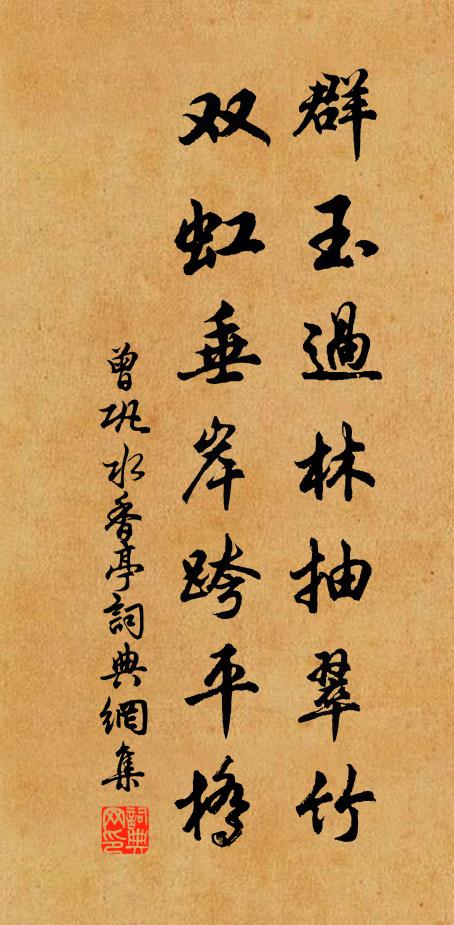 群玉過林抽翠竹
双虹垂岸跨平橋
曾巩水香亭詞典網集
詞典网印